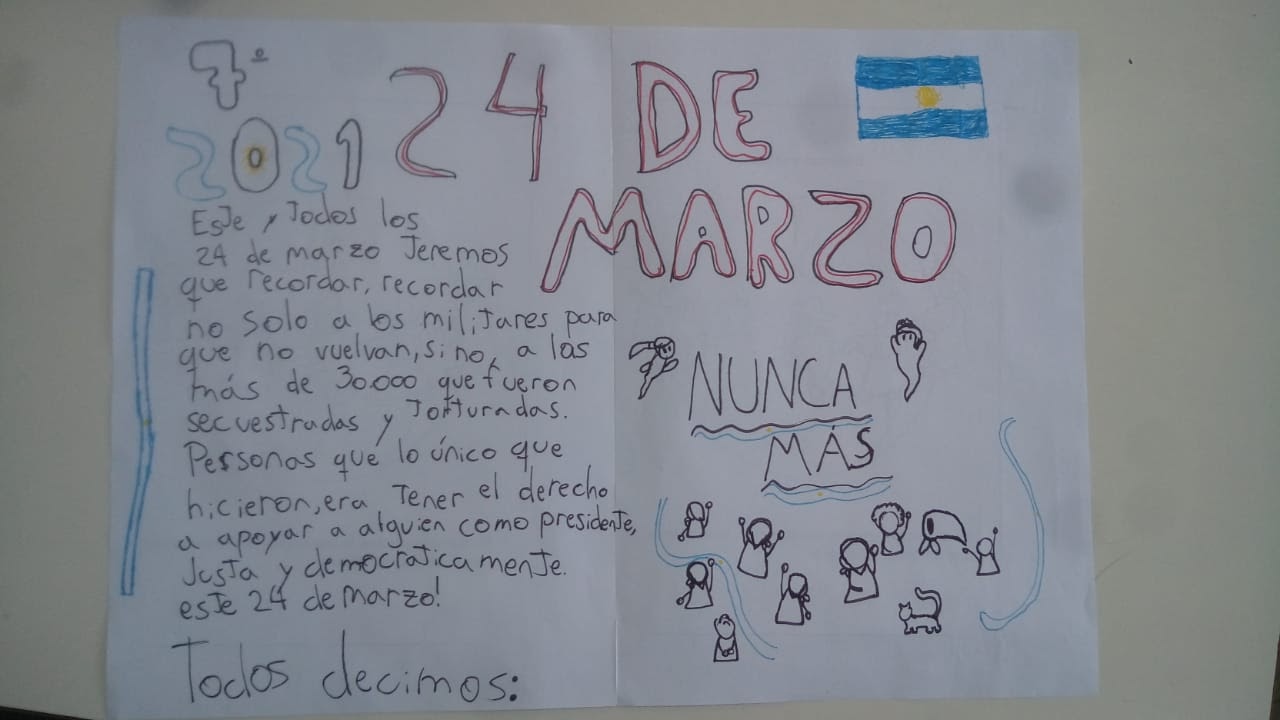 7º
2021
24 DE
MARZO
Este y todos los
24 de marzo teremos
que recordar, recordar
no solo a los militares para
que no vuelvan, sino, a las
más de 30.000 que fueron
secuestradas y torturadas.
Personas que lo único que
hicieron, era tener el derecho
a apoyar a alguien como presidente,
Justa y democraticamente.
este 24 de marzo!
Todos decimos:
NUNCA
MÁS